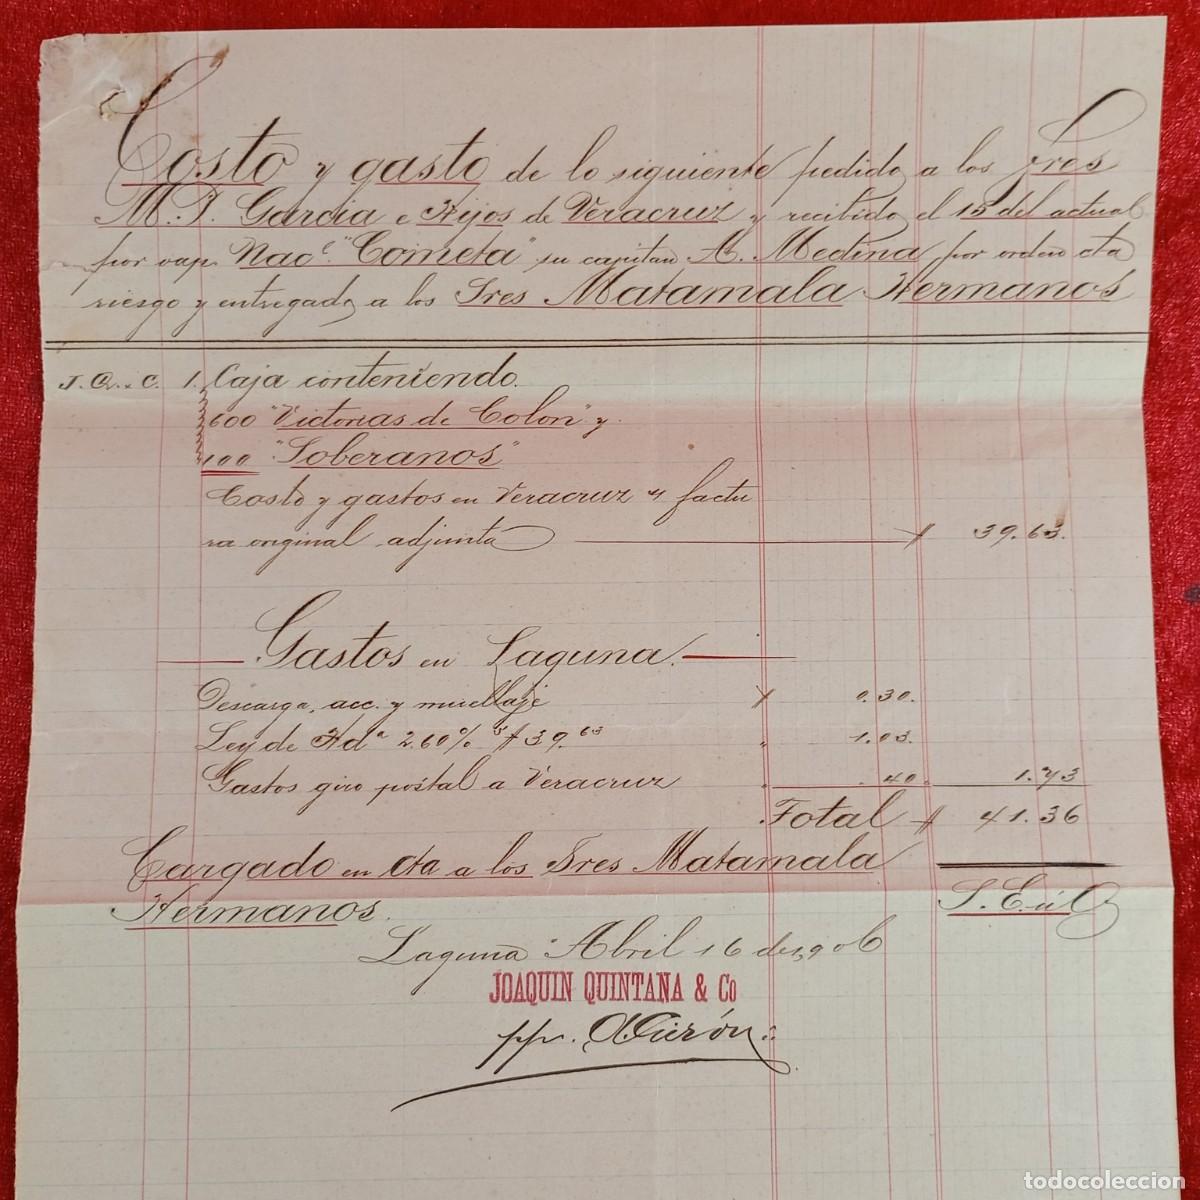 Costo y gasto de lo siguiente pedido a los Sres
M. J. Garcia e Hijos de Veracruz y recibido el 15 del actual
por vap. Nacl. "Cometa" su capitan A. Medina, por orden cta
riesgo y entregado a los Sres Matamala Hermanos
J. Q. y C. 1. Caja conteniendo.
600 "Victorias de Colon" y
100 "Soberanos"
Costo y gastos en Veracruz s/ factu
ra original adjunta $ 39.63.
Gastos en Laguna.
Descarga, acc. y muellaje $ 0.30.
Ley de Hda 2.60% s/ $39.63 " 1.03.
Gastos giro postal a Veracruz " .40. 1.73
Total $ 41.36
Cargado en cta a los Sres Matamala
Hermanos.
S. E. ú O
Laguna Abril 16 de 1,906
JOAQUIN QUINTANA & Co
pp.
todocoleccion